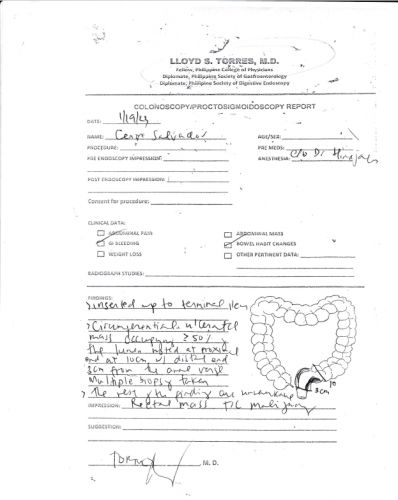 LLOYD S. TORRES, M.D.
Fellow, Philippine College of Physicians
Diplomate, Philippine Society of Gastroenterology
Diplomate, Philippine Society of Digestive Endoscopy
COLONOSCOPY/PROCTOSIGMOIDOSCOPY REPORT
DATE: 1/19/24
NAME: Cesar Salvador AGE/SEX:
PROCEDURE: PRE MEDS:
PRE ENDOSCOPY IMPRESSION: ANESTHESIA: c/o Dr
POST ENDOSCOPY IMPRESSION:
Consent for procedure:
CLINICAL DATA:
ABDOMINAL PAIN ABDOMINAL MASS
GI BLEEDING BOWEL HABIT CHANGES
WEIGHT LOSS OTHER PERTINENT DATA:
RADIOGRAPH STUDIES:
FINDINGS:
inserted up to terminal ileum
Circumferential ulcerated
mass occupying > 50%
the lumen noted at proximal
end at 10cm w/ distal end
3cm from the anal verge
Multiple biopsy taken
The rest of the finding are unremarkable
10
3cm
IMPRESSION: Rectal mass T/C malignancy
SUGGESTION:
M. D.